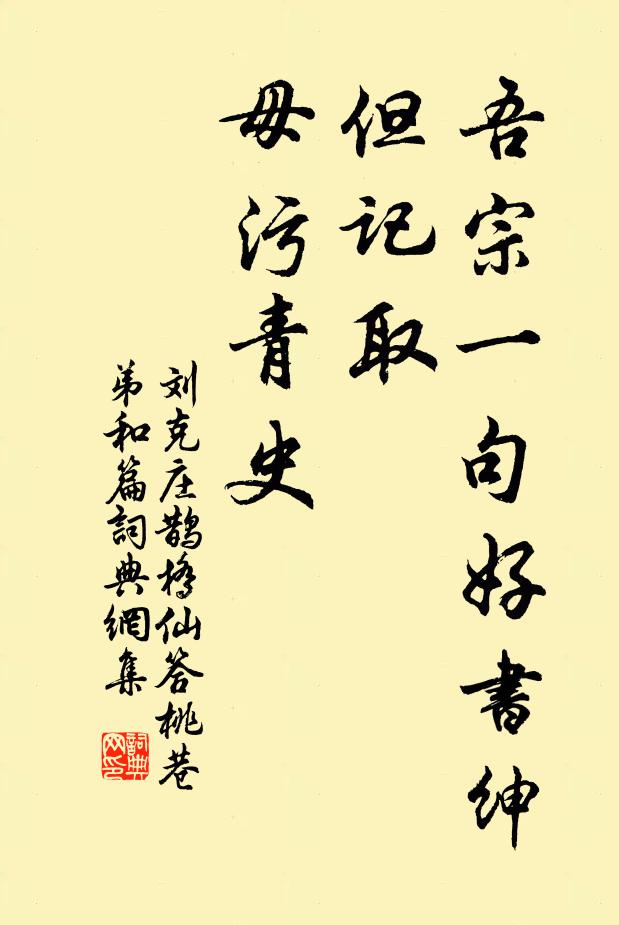 吾宗一句好書紳
但記取
毋污青史
刘克庄鹊橋仙答桃巷
弟和篇詞典網集
詞典
网印